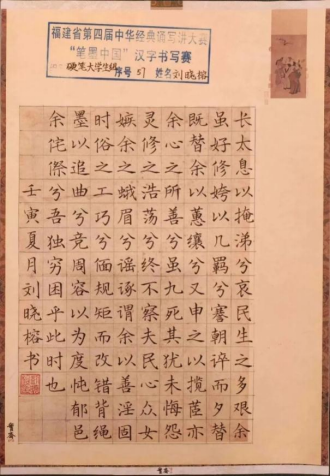 福建省第四届中华经典诵写讲大赛
“笔墨中国”汉字书写赛
硬笔大学生组 序号 51 姓名 刘晓榕
长太息以掩涕兮哀民生之多艰余
虽好修姱以几羁兮謇朝谇而夕替
既替余以蕙纕兮又申之以揽茝亦
余心之所善兮虽九死其犹未悔怨
灵修之浩荡兮终不察夫民心众女
嫉余之蛾眉兮谣诼谓余以善淫固
时俗之工巧兮偭规矩而改错背绳
墨以追曲兮竞周容以为度忳郁邑
余侘傺兮吾独穷困乎此时也
壬寅夏月刘晓榕书